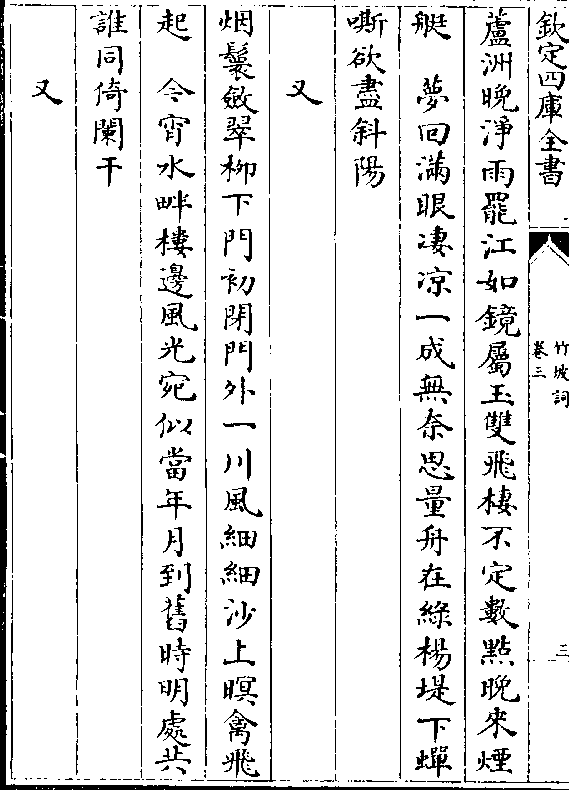 欽定四庫全書
竹坡詞
卷三
三
蘆洲晚淨雨罷江如鏡屬玉雙飛棲不定數點晚來煙
艇　夢回滿眼凄凉一成無奈思量舟在綠楊堤下蟬
嘶欲盡斜陽
又
烟鬟斂翠柳下門初閉門外一川風細細沙上暝禽飛
起　今宵水畔樓邊風光宛似當年月到舊時明處共
誰同倚闌干
又